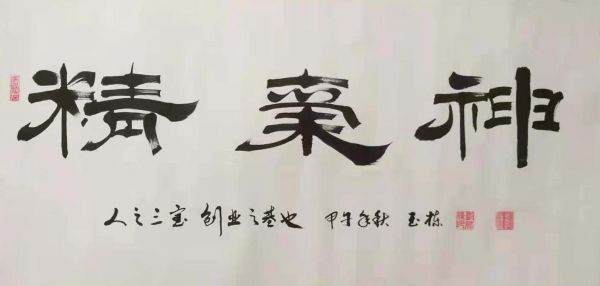 精氣神
人之三宝 创业之基也 甲午年秋 玉栋